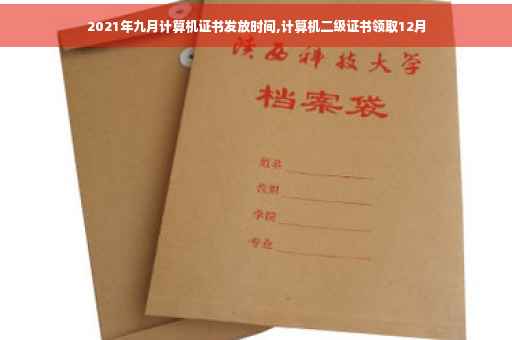 2021年九月计算机证书发放时间,计算机二级证书领取12月
陕西科技大学
档案袋
姓名
学院
专业